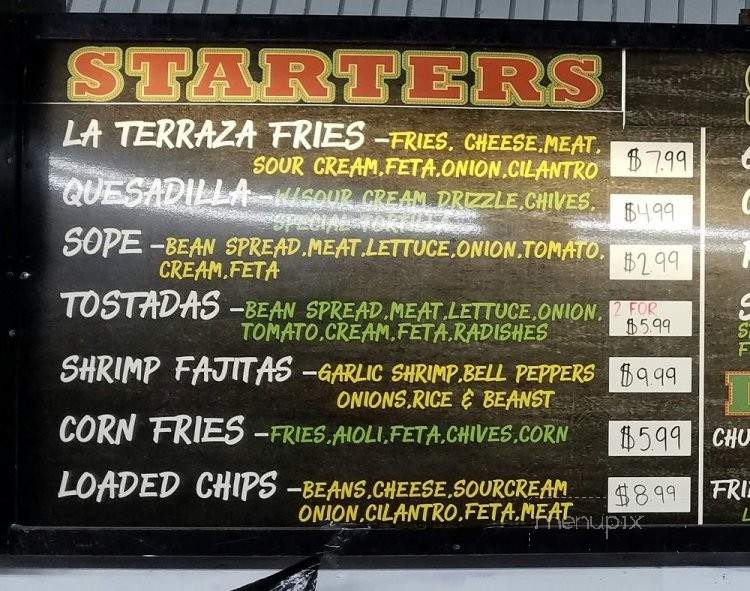 STARTERS
LA TERRAZA FRIES –FRIES, CHEESE,MEAT,
SOUR CREAM,FETA,ONION,CILANTRO
$7.99
QUESADILLA –W/SOUR CREAM DRIZZLE,CHIVES,
SPECIAL TORTILLA
$4.99
SOPE –BEAN SPREAD,MEAT,LETTUCE,ONION,TOMATO,
CREAM,FETA
$2.99
TOSTADAS –BEAN SPREAD,MEAT,LETTUCE,ONION,
TOMATO,CREAM,FETA,RADISHES
2 FOR
$5.99
SHRIMP FAJITAS –GARLIC SHRIMP,BELL PEPPERS
ONIONS,RICE & BEANST
$9.99
CORN FRIES –FRIES,AIOLI,FETA,CHIVES,CORN
$5.99
LOADED CHIPS –BEANS,CHEESE,SOURCREAM
ONION,CILANTRO,FETA,MEAT
$8.99
menupix
CHU
FRI